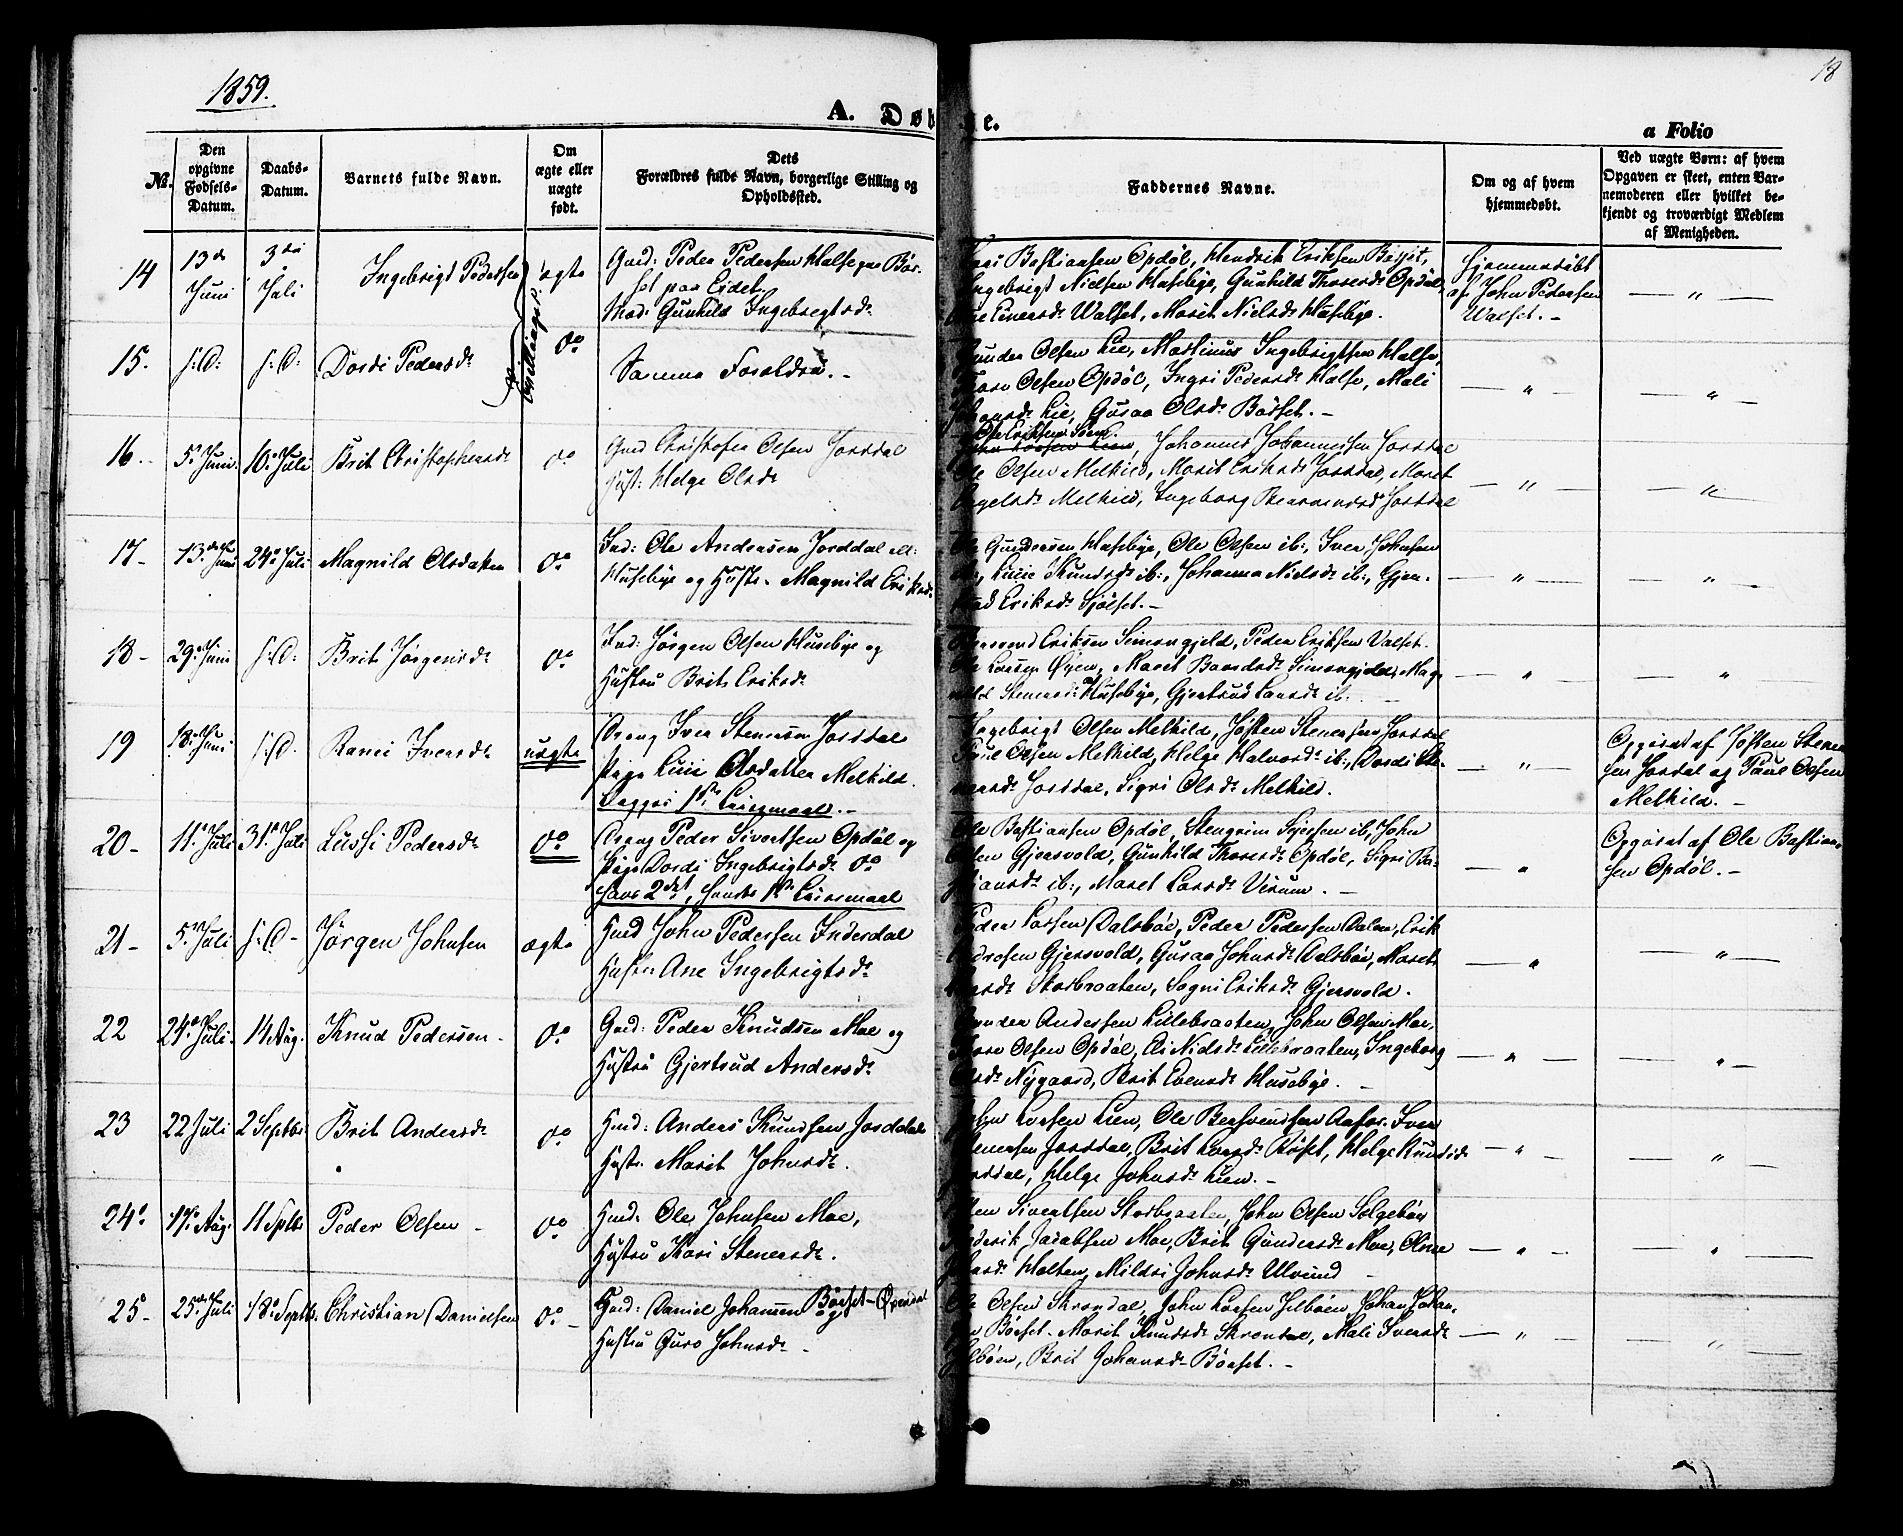 1859.
18
A. Døbte.
a Folio
No.
Den opgivne Fødsels-Datum.
Daabs-Datum.
Barnets fulde Navn.
Om ægte eller uægte født.
Dets Forældres fulde Navn, borgerlige Stilling og Opholdssted.
Faddernes Navne.
Om og af hvem hjemmedøbt.
Ved uægte Børn: af hvem Opgaven er skeet, enten Barnemoderen eller hvilket bekjendt og troværdigt Medlem af Menigheden.
14 13de Juni 3die Juli Ingebrigt Pedersen ægte
Gmd: Peder Pedersen Halsegne Bør-
set paa Eidet.
Mod: Gunhild Ingebregtsdr
Bastiansen Opdøl, Hendrik Eriksen
Ingebrigt Nielsen Husebye, Gunhild Thoresdr Opdøl,
Einersdr Walset, Marit Nielsdr Husebye.
Hjemmedøbt
af John Pedersen
Walset. -
— " —
Tvillinge
15. s:D: s:D: Dordi Pedersdr do
Samme Forældre. -
Gunder Olsen Lie, Martinus Ingebrigtsen Halse,
Thore Olsen Opdøl, Ingri Pedersdr Halse, Mali
Lie, Guraa Olsdr Børset. -
— " —
— " —
16. 5. Juni 10. Juli Brit Christophersdr do
Gmd Christofer Olsen Jordal
Hust: Helge Olsdr
Ole Eriksen
Johannes Johannessen Jordal
Ole Olsen Melkild, Marit Eriksdr Jordal, Maret
Melkild, Ingeborg Jordal
— " —
— " —
17- 13de Juni 24de Juli Magnild Olsdatter do
Ind: Ole Andersen Jorddal ell:
Husebye og Hustr. Magnild Eriksdr
Gundersen Husebye, Ole Olsen ib:, Iver Johnsen
ib:, Johanna Nielsdr ib:, Gjer-
trud Eriksdr Sjølset. -
— " —
— " —
18- 29de Juni s:D: Brit Jørgensdr do
Ind: Jørgen Olsen Husebye og
Hustru Brit Eriksdr
Eriksen Simongjeld, Peder Eriksen Valset.
Larsen Øyen, Maret Baardsdr Simongjeld, Mag-
nild Stenersdr Husebye, Gjertrud Larsdr ib.
— " —
— " —
19 18de Juni s:D. Ranei Iversdr uægte
Dreng Iver Stenersen Jorddal
Pige Luci Olsdatter Melkild.
Begges 1ste Leiermaal. -
Ingebrigt Olsen Melkild, Josten Stenersen Jordal
Paul Olsen Melkild, Helge Halvorsdr ib:, Dordi Ste-
nersdr Jorddal, Sigri Olsdr Melkild.
— " —
Opgivet af Josten Stener-
sen Jordal og Paul Olsen
Melkild. -
20- 11te Juli 31te Juli Lussi Pedersdr do
Dreng Peder Sivertsen Opdøl og
Pige Dordi Ingebrigtsdr do
Hans 2det, hendes 1ste Leiermaal
Ole Bastiansen Opdøl, Stengrim Sjersen ib, John
Olsen Gjersvold, Gunhild Thoresdr Opdøl, Sigri Ba-
stiansdr ib:, Maret Larsdr Virum. -
— " —
Opgivet af Ole Bastian-
sen Opdøl. -
21- 5te Juli s:D- Jørgen Johnsen ægte
Gmd John Pedersen Inderdal
Hustr. Ane Ingebrigtsdr
Peder Larsen Dalsbøe, Peder Pedersen Dalen, Erik
Gjersvold, Guraa Johnsdr Dalsbøe, Maret
Storbraaten, Sagni Eriksdr Gjersvold.
— " —
— " —
22 24de Juli. 14 Aug. Knud Pedersen. do
Gmd: Peder Knudsen Moe og
Hustru Gjertrud Andersdr
Gunder Andersen Lillebraaten, John Olsen Moe,
Thore Olsen Opdøl, Eli Nielsdr Lillebraaten, Ingeborg
Olsdr Nygaard, Brit Evensdr Husebye. -
— " —
— " —
23 22 Juli 2 Septbr Brit Andersdr do
Gmd: Anders Knudsen Jorddal
Hustr. Marit Johnsdr.
John Larsen Lien, Ole Aafar. Iver
Stenersen Jorddal, Brit Larsdr Røset, Helge Knudsdr
Jorddal, Helge Johnsdr Lien. -
— " —
— " —
24. 17de Aug. 11 Septbr Peder Olsen - do
Gmd: Ole Johnsen Moe,
Hustru Kari Stenersdr.
Siversen Storbraaten, John Olsen Sølgebøe
Jacobsen Moe, Brit Gundersdr Moe, Oline
Holten, Mildri Johnsdr Ulvund
— " —
— " —
25- 25de Juli 18. Septbr. Christian Danielsen do
Gmd: Daniel Johansen Børset-Øpsdal
Hustru Guro Johnsdr -
Ole Olsen Skrondal, John Larsen Jelbøen, Johan Johan-
sen Børset. Marit Knudsdr Skrondal, Mali Iversdr
Jelbøen, Brit Johansdr Børset. -
— " —
— " —